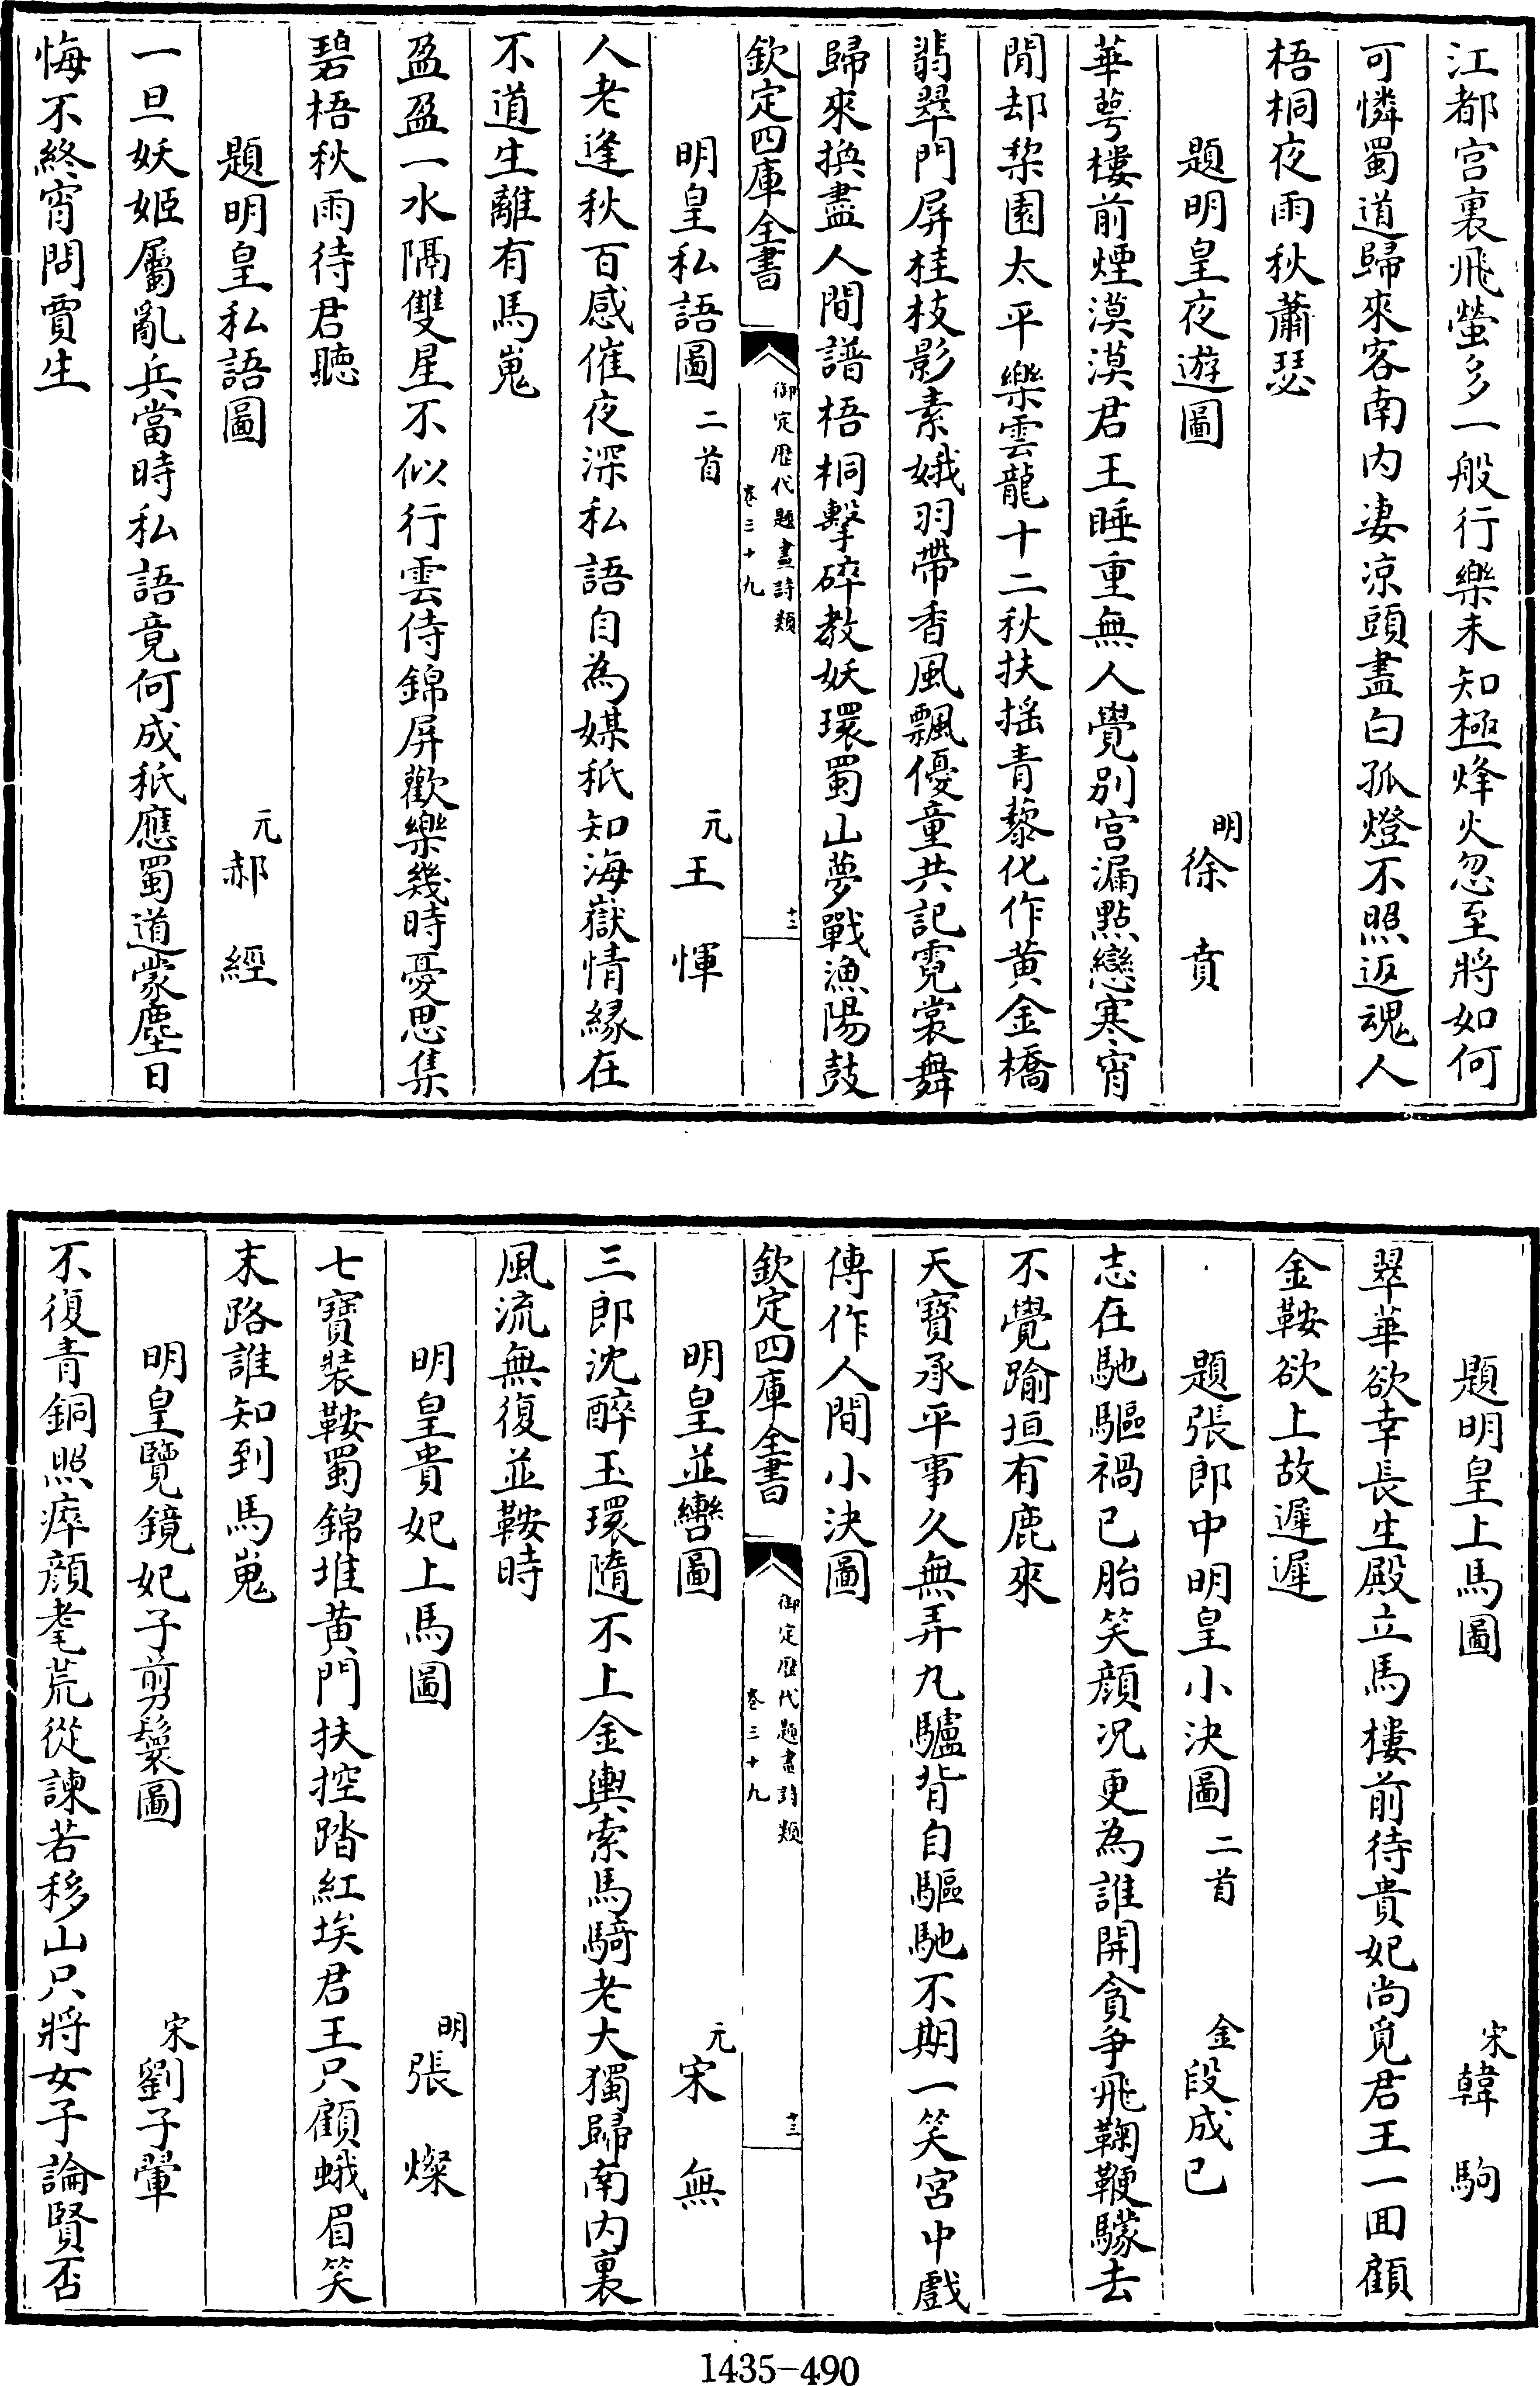 江都宫裏飛螢多一般行樂未知極烽火忽至將如何
可憐蜀道歸來客南内凄凉頭盡白孤燈不照返魂人
梧桐夜雨秋蕭瑟
題明皇夜遊圖 明徐賁
華萼樓前煙漠漠君王睡重無人覺别宫漏點戀寒宵
閒却棃園太平樂雲龍十二秋扶摇青藜化作黄金橋
翡翠門屏桂枝影素娥羽帶香風飄優童共記霓裳舞
歸來換盡人間譜梧桐擊碎教妖環蜀山夢戰漁陽鼓
欽定四庫全書 御定歷代題畫詩類 卷三十九 十二
明皇私語圖二首 元王惲
人老逢秋百感催夜深私語自為媒秖知海嶽情緣在
不道生離有馬嵬
盈盈一水隔雙星不似行雲侍錦屏歡樂幾時憂思集
碧梧秋雨待君聽
題明皇私語圖 元郝經
一旦妖姬屬亂兵當時私語竟何成秖應蜀道蒙塵日
悔不終宵問賈生
題明皇上馬圖 宋韓駒
翠華欲幸長生殿立馬樓前待貴妃尚覓君王一囬顧
金鞍欲上故遲遲
題張郎中明皇小決圖二首 金段成已
志在馳驅禍已胎笑顔况更為誰開貪爭飛鞠鞭驟去
不覺踰垣有鹿來
天寶承平事久無弄丸驢背自驅馳不期一笑宮中戲
傳作人間小決圖
欽定四庫全書 御定歷代題畫詩類 卷三十九 十三
明皇並轡圖 元宋無
三郎沈醉玉環隨不上金輿索馬騎老大獨歸南内裏
風流無復並鞍時
明皇貴妃上馬圖 明張燦
七寶裝鞍蜀錦堆黄門扶控踏紅埃君王只顧蛾眉笑
末路誰知到馬嵬
明皇覽鏡妃子剪鬟圖 宋劉子翬
不復青銅照瘁顔耄荒從諫若移山只將女子論賢否
1435-490